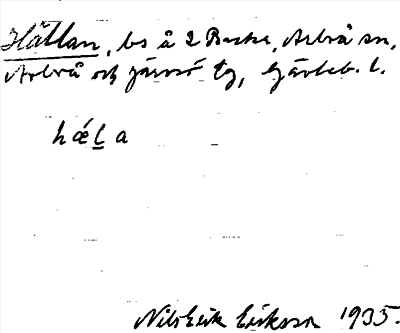 Hållan, bs å 2 Backe, Arbrå sn,
Arbrå och Järvsö tg, Gävleb. l.
hǽḻa
Nils Erik Eriksson 1935.